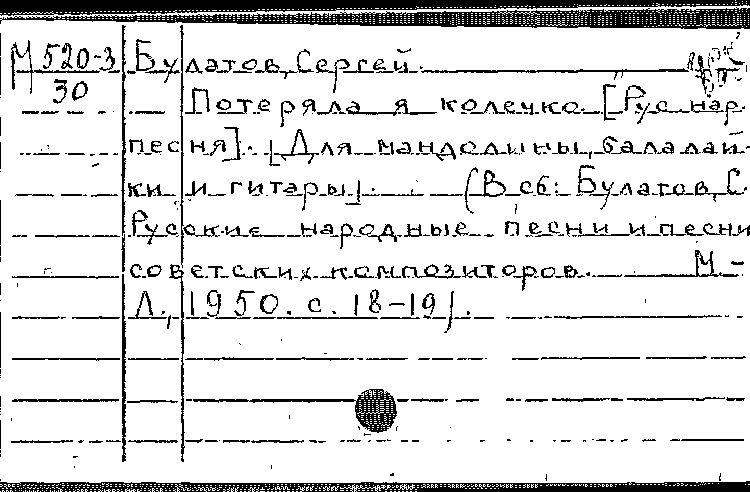 М 520-3 Булатов, Сергей.
30 Потеряла я колечко. [Рус. нар.
песня]. [Для мандолины, балалай-
ки и гитары]. (В сб: Булатов, С.
Русские народные песни и песни
советских композиторов. М -
Л., 1950. с. 18-19).